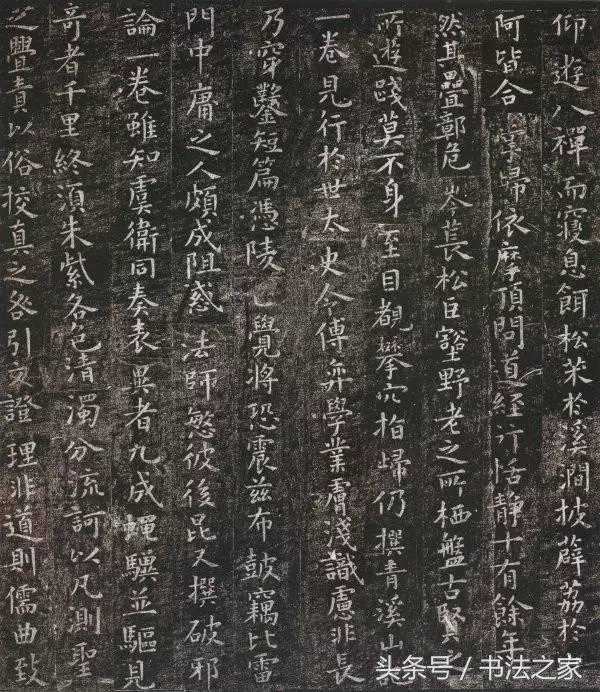 仰遊八禪而寢息餌松茱於溪澗披薜荔於
阿皆合掌歸依摩頂問道經行恬靜十有餘年
然其疊鄣危岑萇松巨壑野老之所栖盤古賢之
所遊踐莫不身至目覩攀穴指歸仍撰青溪山記
一卷見行於世太史令傅弈學業膚淺識慮非長
乃穿鑿短篇憑陵覺將恐震茲布鼓竊比雷
門中庸之人頗成阻惑法師慜彼後昆又撰破邪
論一卷雖知虞衛同奏表異者九成蠅驥並驅見
奇者千里終須朱紫各色清濁分流詎以凡測聖
之舋責以俗挍真之咎引文證理非道則儒曲致
头条号／书法之家